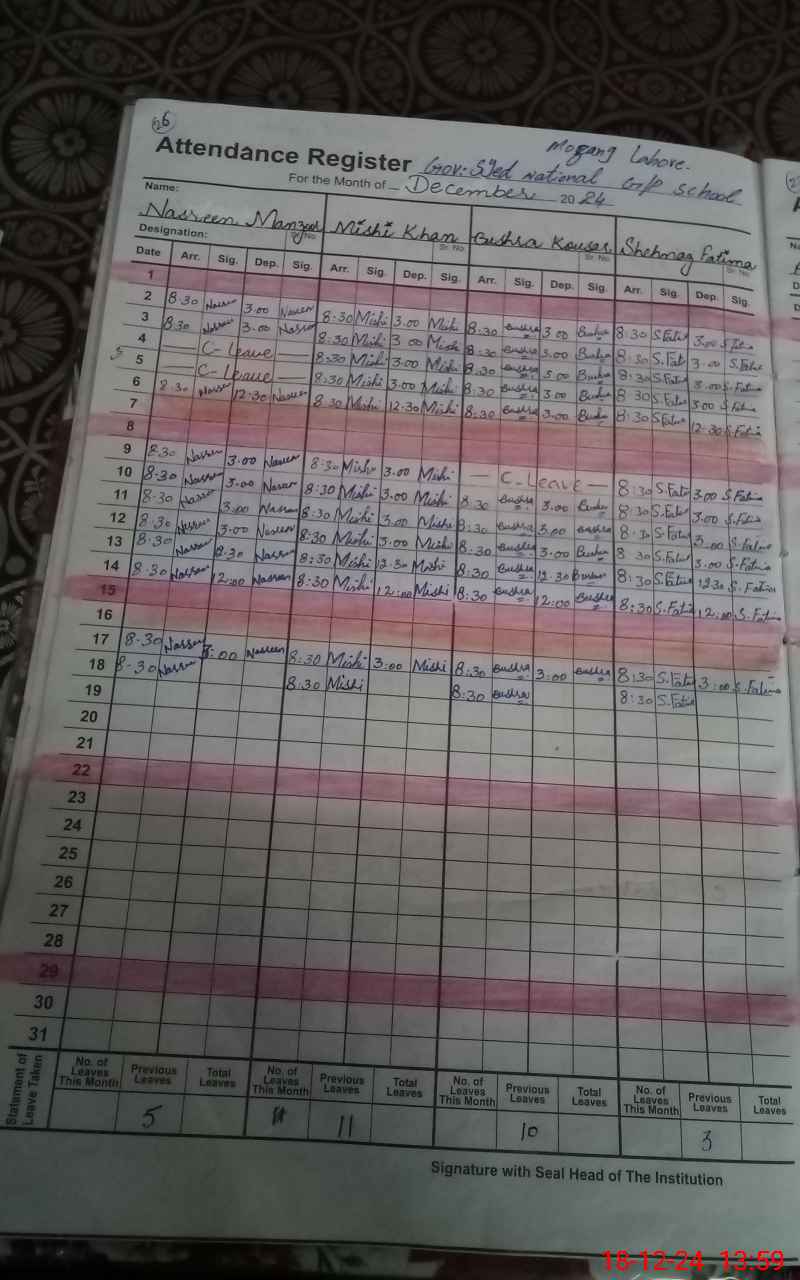 26
Mozang Lahore.
Attendance Register Gov: Syed National G/P School
For the Month of December 2024
Name:
Nasreen Manzoor Mishi Khan Bushra Kousar Shehnaz Fatima
Designation: Sr. No Sr. No Sr. No Sr. No
Date Arr. Sig. Dep. Sig. Arr. Sig. Dep. Sig. Arr. Sig. Dep. Sig. Arr. Sig. Dep. Sig.
1
2 8.30 Nasreen 3.00 Nasreen 8:30 Mishi 3.00 Mishi 8:30 Bushra 3.00 Bushra 8:30 S.Fatima 3.00 S.Fatima
3 8.30 Nasreen 3.00 Nasreen 8:30 Mishi 3.00 Mishi 8:30 Bushra 3.00 Bushra 8:30 S.Fatima 3.00 S.Fatima
4 — C-Leave — 8:30 Mishi 3.00 Mishi 8:30 Bushra 3.00 Bushra 8:30 S.Fatima 3.00 S.Fatima
5 — C-Leave — 8:30 Mishi 3.00 Mishi 8:30 Bushra 3.00 Bushra 8:30 S.Fatima 3.00 S.Fatima
6 8:30 Nasreen 12:30 Nasreen 8:30 Mishi 12:30 Mishi 8:30 Bushra 3.00 Bushra 8:30 S.Fatima 12:30 S.Fatima
7
8
9 8:30 Nasreen 3.00 Nasreen 8:30 Mishi 3.00 Mishi — C-Leave — 8:30 S.Fatima 3.00 S.Fatima
10 8:30 Nasreen 3.00 Nasreen 8:30 Mishi 3.00 Mishi 8:30 Bushra 3.00 Bushra 8:30 S.Fatima 3.00 S.Fatima
11 8:30 Nasreen 3.00 Nasreen 8:30 Mishi 3.00 Mishi 8:30 Bushra 3.00 Bushra 8:30 S.Fatima 3:00 S.Fatima
12 8:30 Nasreen 3.00 Nasreen 8:30 Mishi 3.00 Mishi 8:30 Bushra 3.00 Bushra 8:30 S.Fatima 3.00 S.Fatima
13 8:30 Nasreen 8:30 Nasreen 8:30 Mishi 12:30 Mishi 8:30 Bushra 12:30 Bushra 8:30 S.Fatima 12:30 S.Fatima
14 8:30 Nasreen 12:00 Nasreen 8:30 Mishi 12:00 Mishi 8:30 Bushra 12:00 Bushra 8:30 S.Fatima 12:00 S.Fatima
15
16
17 8:30 Nasreen 3:00 Nasreen 8:30 Mishi 3:00 Mishi 8:30 Bushra 3:00 Bushra 8:30 S.Fatima 3:00 S.Fatima
18 8:30 Nasreen 8:30 Mishi 8:30 Bushra 8:30 S.Fatima
19
20
21
22
23
24
25
26
27
28
29
30
31
Statement of Leave Taken
No. of Leaves This Month Previous Leaves Total Leaves No. of Leaves This Month Previous Leaves Total Leaves No. of Leaves This Month Previous Leaves Total Leaves No. of Leaves This Month Previous Leaves Total Leaves
5 11 10 3
Signature with Seal Head of The Institution
18-12-24 13:59